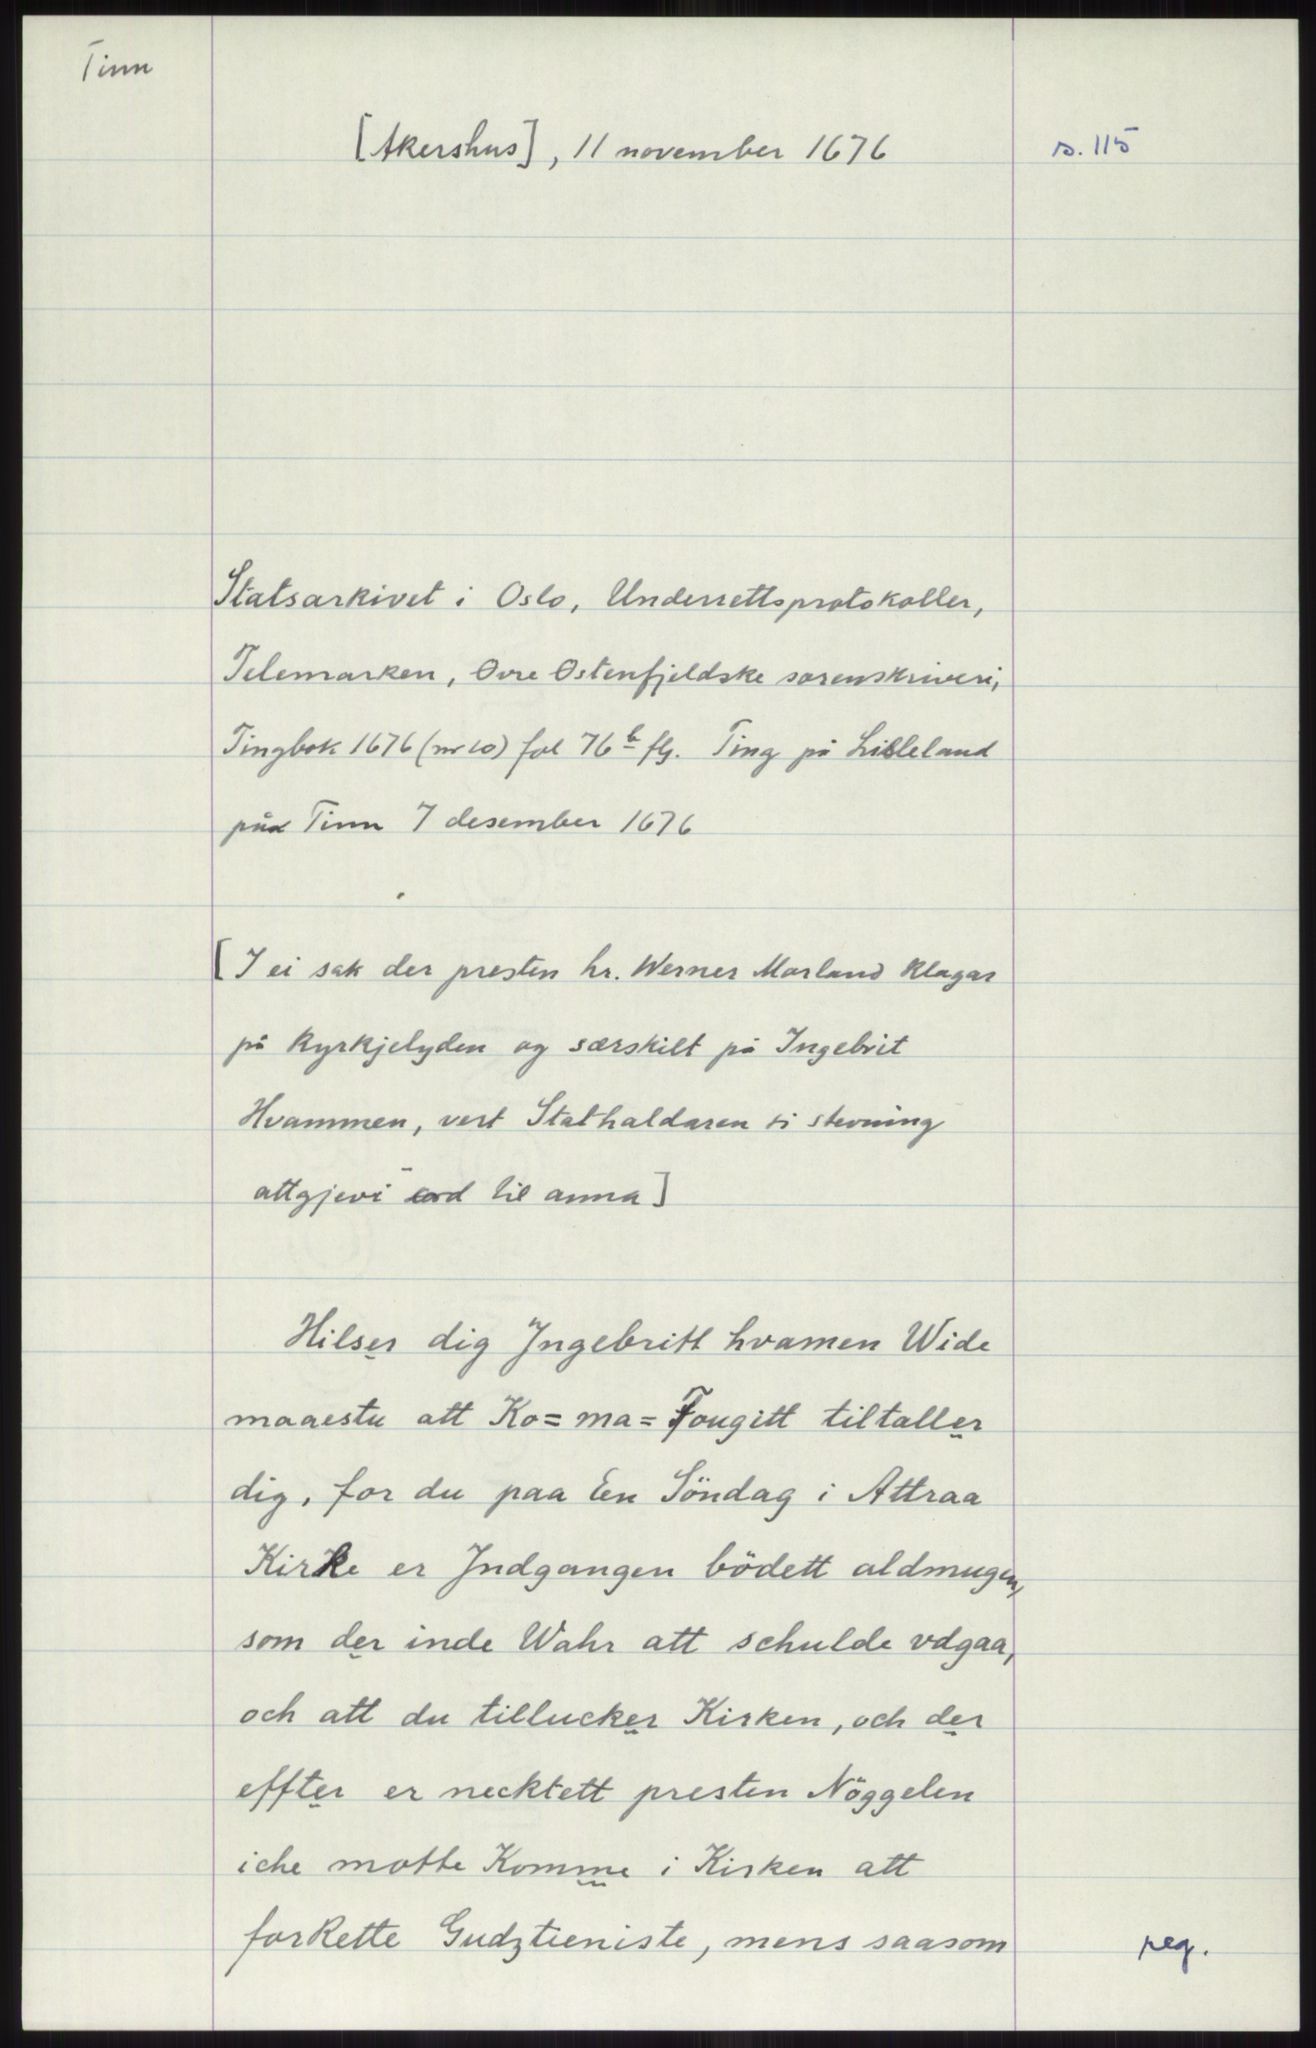 Tinn
[Akershus], 11 november 1676
s. 115
Statsarkivet i Oslo, Underrettsprotokoller,
Telemarken, Øvre Østenfjeldske sorenskriveri,
Tingbok 1676 (nr 10) fol 76 b flg. Ting på Lisleland
på Tinn 7 desember 1676
[I ei sak der presten hr. Werner Morland klagar
på kyrkjelyden og særskilt på Ingebrit
Hvammen, vert Stathaldaren si stevning
attgjevi ord til anna]
Hilser dig Jngebritt hvamen Wide
maaestu att Ko=ma= Fougitt tiltaller
dig, for du paa En Söndag i Attraa
Kirke er Jndgangen bödett aldmugen,
som der inde Wahr att schulde vdgaa,
och att du tillucker Kirken, och der
effter er necktett presten Nöggelen
iche motte Komme i Kirken att
forRette Gudztieniste, mens saasom
reg.